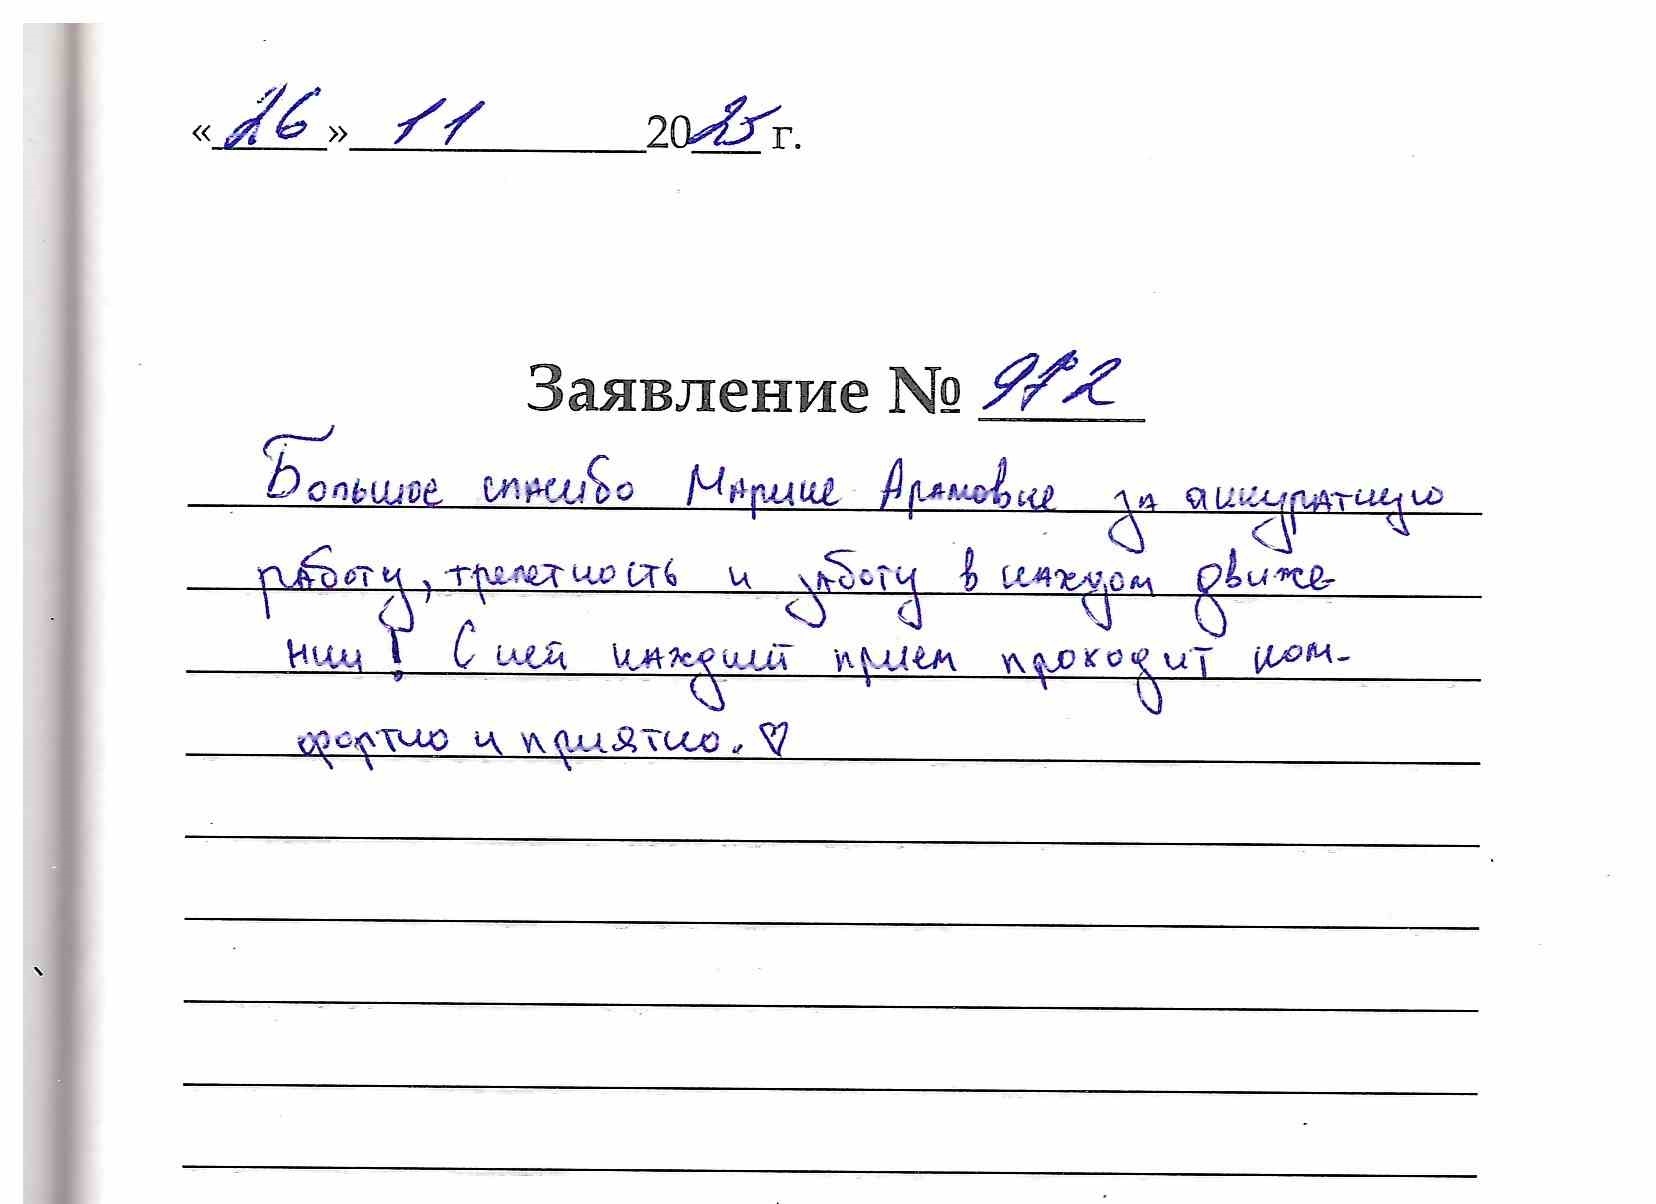 «26» 11 2025 г.
Заявление № 972
Большое спасибо Марине Арамовне за аккуратную
работу, трепетность и заботу в каждом движе-
нии! С ней каждый прием проходит ком-
фортно и приятно. ♡